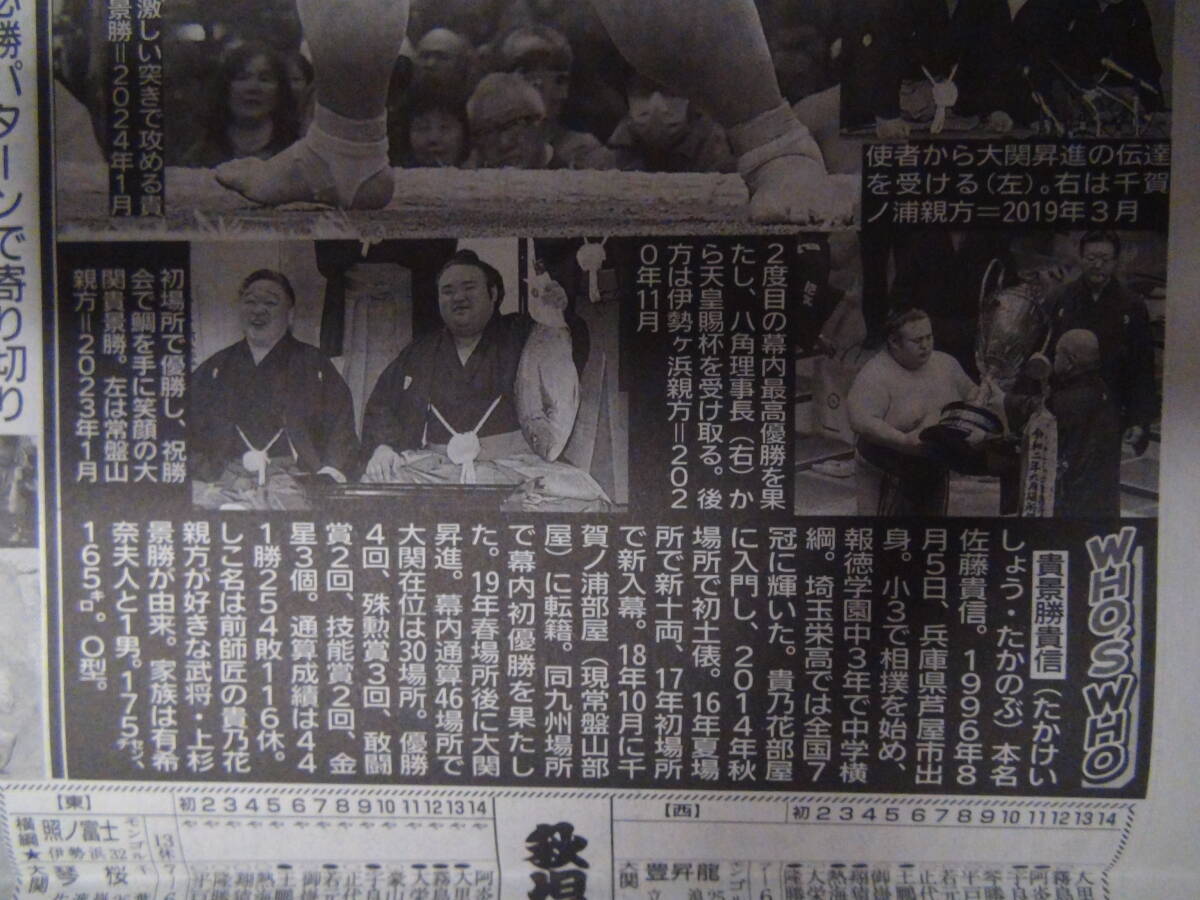 必勝パターンで寄り切り
激しい突きで攻める貴
景勝＝2024年1月
使者から大関昇進の伝達
を受ける（左）。右は千賀
ノ浦親方＝2019年3月
2度目の幕内最高優勝を果
たし、八角理事長（右）か
ら天皇賜杯を受け取る。後
方は伊勢ヶ浜親方＝202
0年11月
初場所で優勝し、祝勝
会で鯛を手に笑顔の大
関貴景勝。左は常盤山
親方＝2023年1月
WHO'S WHO
貴景勝貴信（たかけい
しょう・たかのぶ）本名
佐藤貴信。1996年8
月5日、兵庫県芦屋市出
身。小3で相撲を始め、
報徳学園中3年で中学横
綱。埼玉栄高では全国7
冠に輝いた。貴乃花部屋
に入門し、2014年秋
場所で初土俵。16年夏場
所で新十両、17年初場所
で新入幕。18年10月に千
賀ノ浦部屋（現常盤山部
屋）に転籍。同九州場所
で幕内初優勝を果たし
た。19年春場所後に大関
昇進。幕内通算46場所で
大関在位は30場所。優勝
4回、殊勲賞3回、敢闘
賞2回、技能賞2回、金
星3個。通算成績は44
1勝254敗116休。
しこ名は前師匠の貴乃花
親方が好きな武将・上杉
景勝が由来。家族は有希
奈夫人と1男。175㌢、
165㌔。O型。
【東】
初 2 3 4 5 6 7 8 9 10 11 12 13 14
横綱 照ノ富士 モンゴル
★ 伊勢浜 32 13休
大関 琴桜
秋場
【西】
初 2 3 4 5 6 7 8 9 10 11 12 13 14
大関 豊昇龍 モンゴル
立浪 25